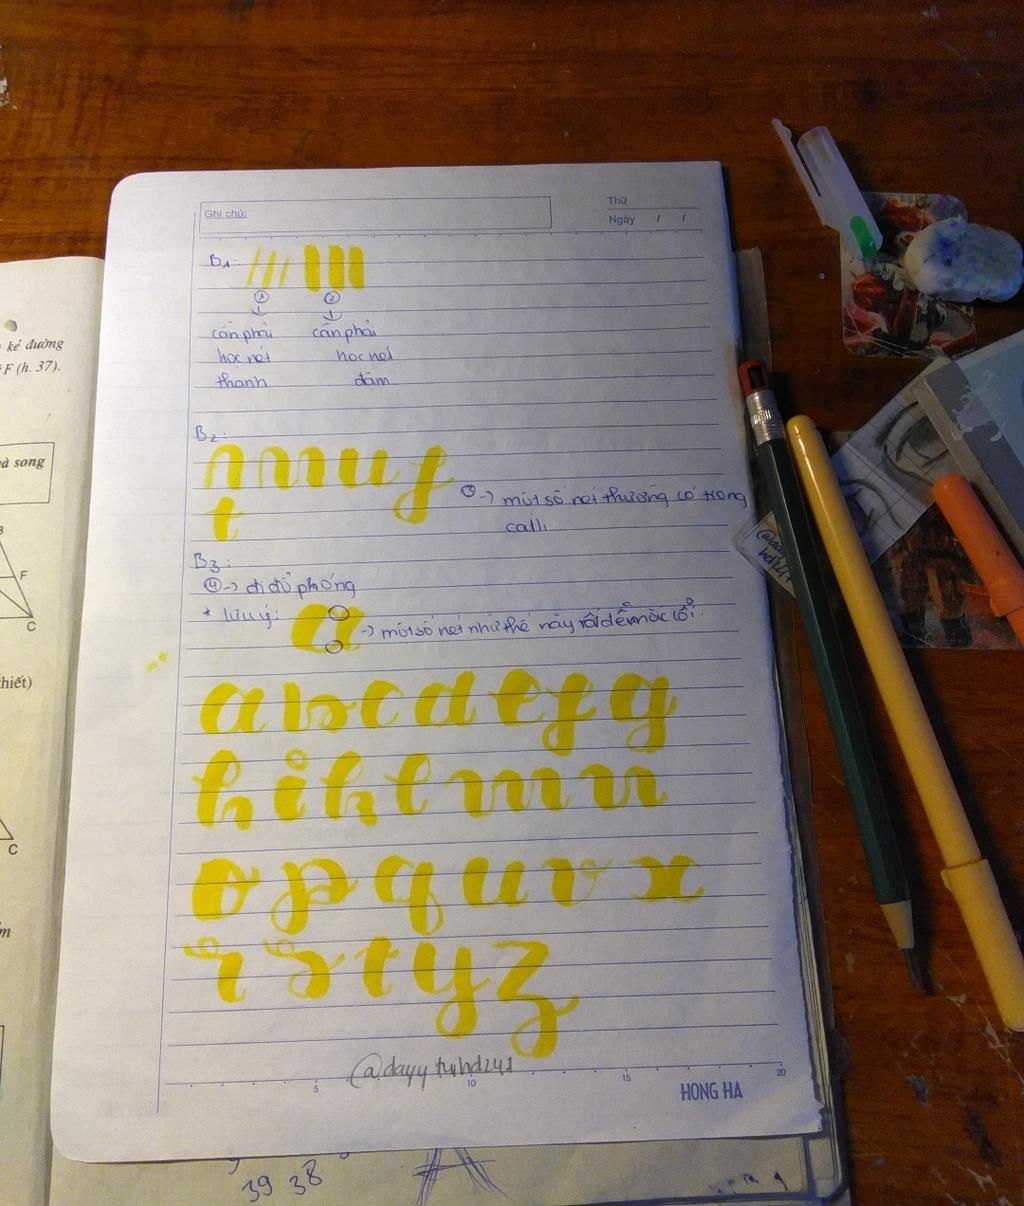 Ghi chú:
Thứ
Ngày / /
B1:
① ②
cần phải cần phải
học nét học nét
thanh đậm
B2:
n m u f
t
③ -> một số nét thường có trong
calli
B3:
④ -> đi đủ phóng
* lưu ý: a -> một số nét như thế này rất dễ mắc lỗi.
a b c d e f g
h i k l m n
o p q u v x
r s t y z
5 10 15 20
HONG HA
kẻ đường
F (h. 37).
và song
F
C
thiết)
C
39 38